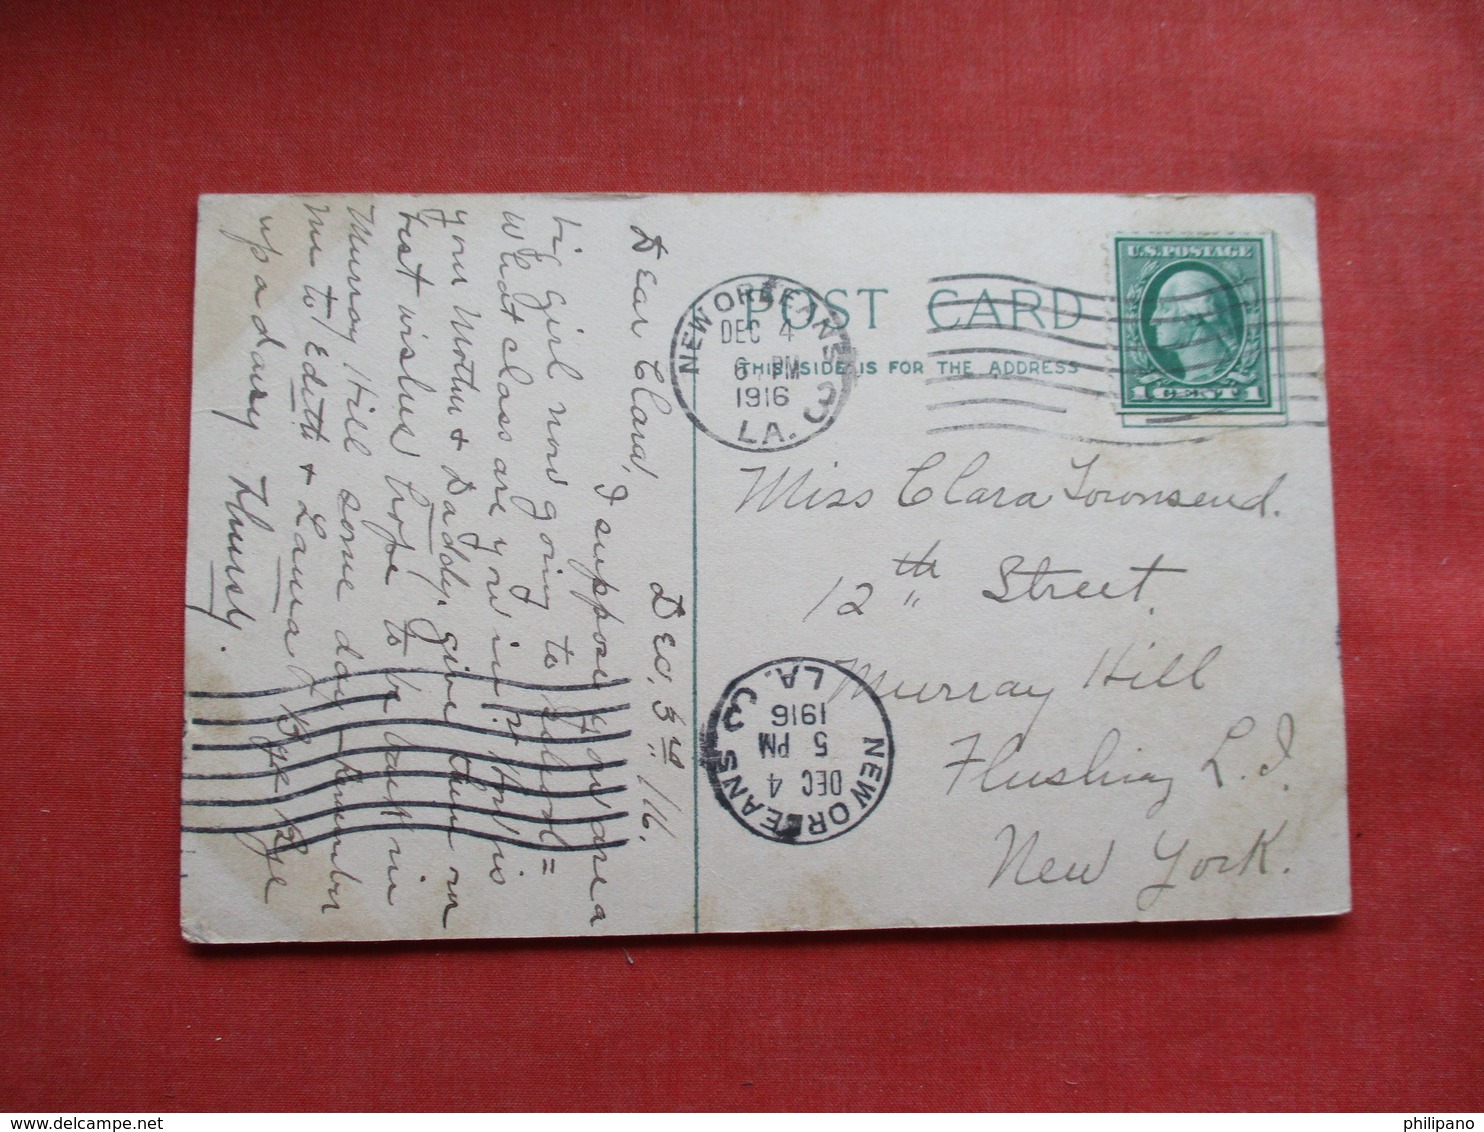 POST CARD
THIS SIDE IS FOR THE ADDRESS
U.S. POSTAGE
1 CENT 1
NEW ORLEANS
DEC 4
6 PM
1916
LA. 3
Miss Clara Townsend.
12th Street.
Murray Hill
Flushing L.I.
New York.
NEW ORLEANS
DEC 4
5 PM
1916
LA. 3
Dec, 3rd /16.
Dear Clara,
I suppose you are a
big girl now going to school =
What class are you in? How is
your Mother & Daddy. give them our
best wishes hope to be back in
Murray Hill some day remember
me to Edith & Laura Bye Bye
up a daisy
philipano